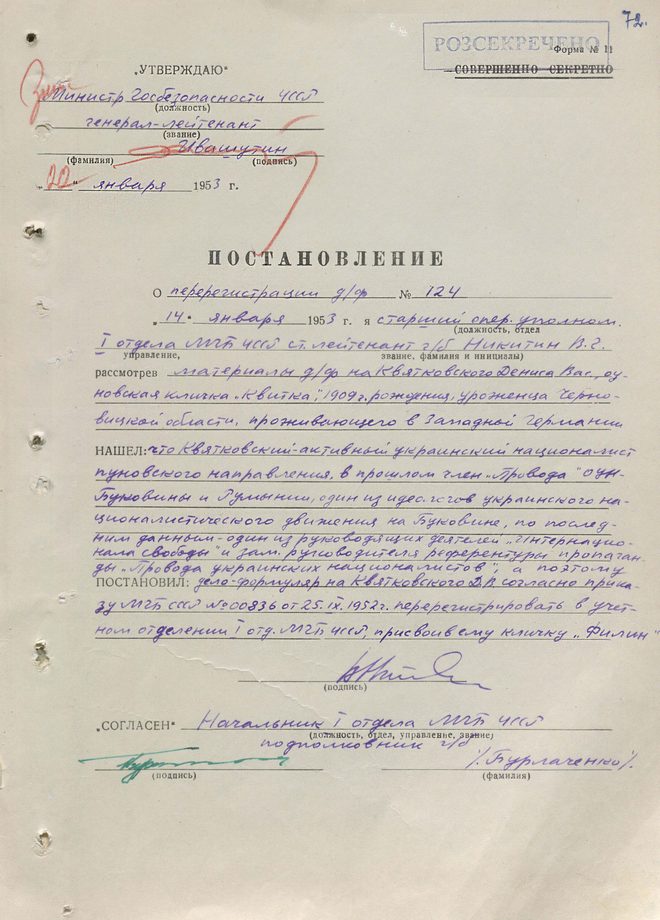 72.
РОЗСЕКРЕЧЕНО
Форма № 11
СОВЕРШЕННО СЕКРЕТНО
„УТВЕРЖДАЮ“
Министр Госбезопасности УССР
(должность)
генерал-лейтенант
(звание)
Ивашутин
(фамилия) (подпись)
„22“ января 1953 г.
ПОСТАНОВЛЕНИЕ
О перерегистрации д/ф № 124
„14“ января 1953 г. я старший опер. уполном.
(должность, отдел
I отдела МГБ УССР ст. лейтенант г/б Никитин В.Г.
управление, звание, фамилия и инициалы)
рассмотрев материалы д/ф на Квятковского Дениса Вас., оу-
новская кличка „Квитка“, 1909 г. рождения, уроженца Черно-
вицкой области, проживающего в Западной Германии
НАШЕЛ: что Квятковский - активный украинский националист
пуновского направления, в прошлом член „Провода“ ОУН
Буковины и Румынии, один из идеологов украинского на-
ционалистического движения на Буковине, по послед-
ним данным - один из руководящих деятелей „Интернацио-
нала свободы“ и зам. руководителя референтуры пропаган-
ды „Провода украинских националистов“, а поэтому
ПОСТАНОВИЛ: дело-формуляр на Квятковского Д.В. согласно прика-
зу МГБ СССР № 00836 от 25.IX.1952 г. перерегистрировать в учет-
ном отделении I отд. МГБ УССР, присвоив ему кличку „Филин“
(подпись)
„СОГЛАСЕН“ Начальник I отдела МГБ УССР
(должность, отдел, управление, звание)
подполковник г/б
/Бурлаченко/.
(подпись) (фамилия)